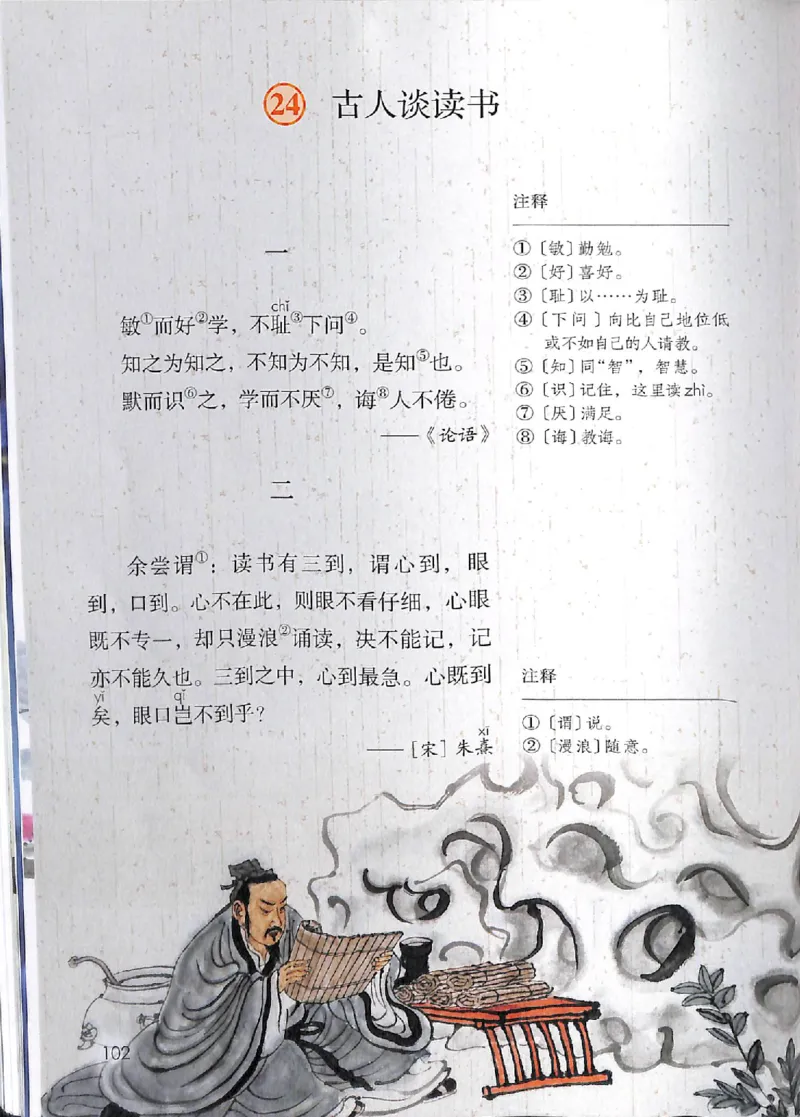 24 古人谈读书
一
chǐ
敏①而好②学，不耻③下问④。
知之为知之，不知为不知，是知⑤也。
默而识⑥之，学而不厌⑦，诲⑧人不倦。
——《论语》
注释
①〔敏〕勤勉。
②〔好〕喜好。
③〔耻〕以……为耻。
④〔下问〕向比自己地位低
或不如自己的人请教。
⑤〔知〕同“智”，智慧。
⑥〔识〕记住，这里读zhì。
⑦〔厌〕满足。
⑧〔诲〕教诲。
二
余尝谓①：读书有三到，谓心到，眼
到，口到。心不在此，则眼不看仔细，心眼
既不专一，却只漫浪②诵读，决不能记，记
亦不能久也。三到之中，心到最急。心既到
yǐ qǐ
矣，眼口岂不到乎？
xī
——［宋］朱熹
注释
①〔谓〕说。
②〔漫浪〕随意。
102